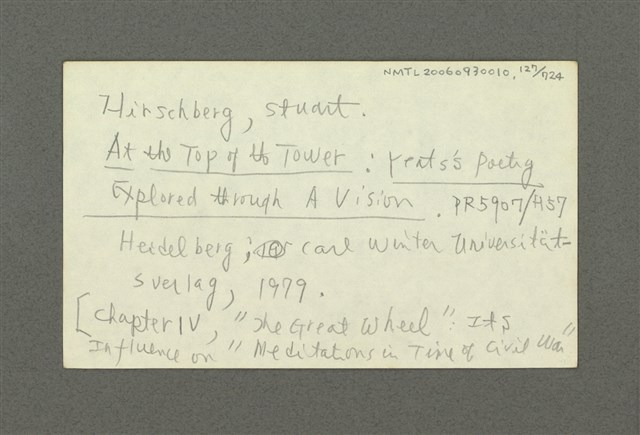 NMTL20060930010, 127/724
Hirschberg, Stuart.
At the Top of the Tower : Yeats's Poetry
Explored through A Vision. PR5907/H57
Heidelberg; Carl Winter Universität-
sverlag, 1979.
[Chapter IV, "The Great Wheel": Its
Influence on "Meditations in Time of Civil War"